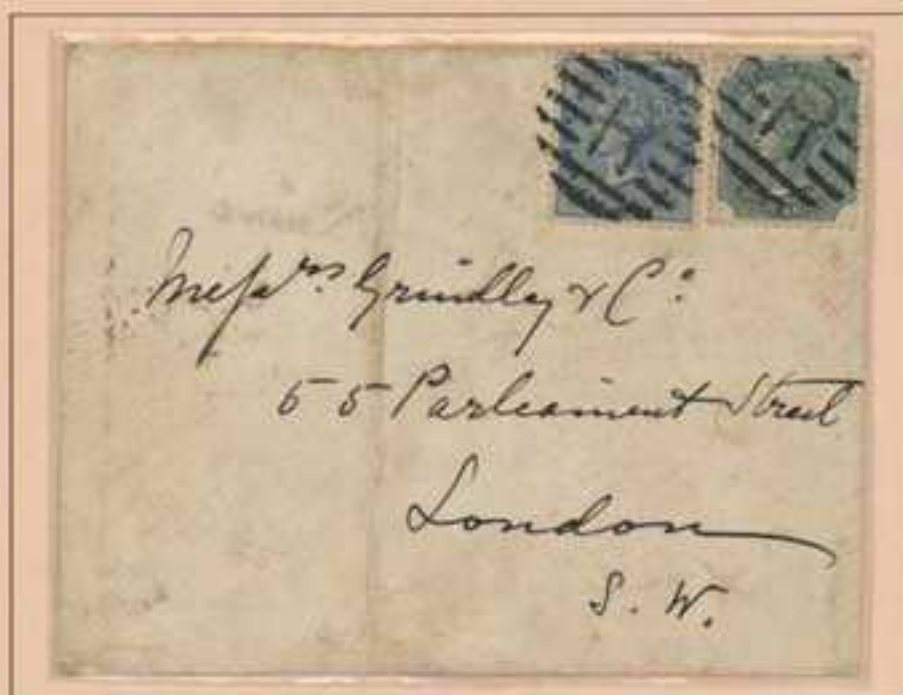 Messrs. Grindlay & Co.
55 Parliament Street
London
S. W.